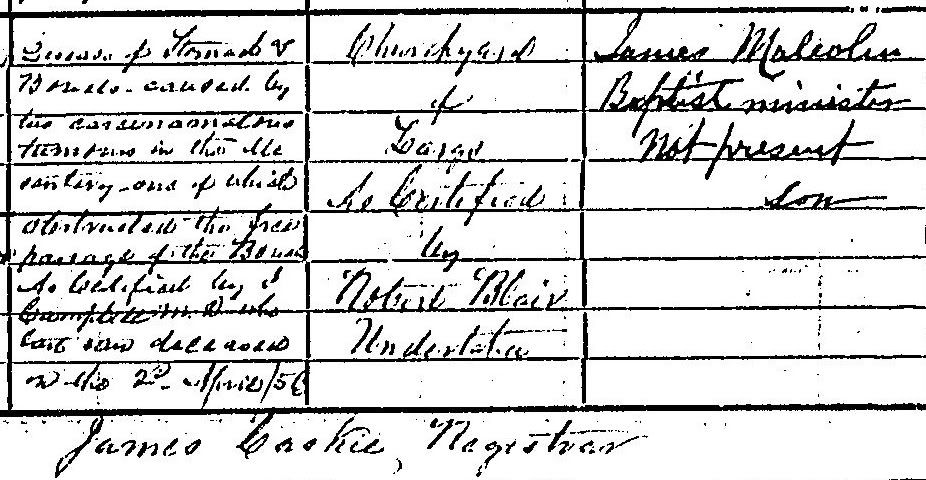 Disease of Stomach &
Bowels - caused by
two carsenamatous
tumours in the Me
sentery - one of which
obstructed the free
passage of the Bowels
As Certified by
Campbell M.D. who
last saw deceased
on the 2d April/56
Churchyard
of
Largs
As Certified
by
Robert Blair
Undertaker
James Malcolm
Baptist minister
Not present
Son
James Caskie, Registrar